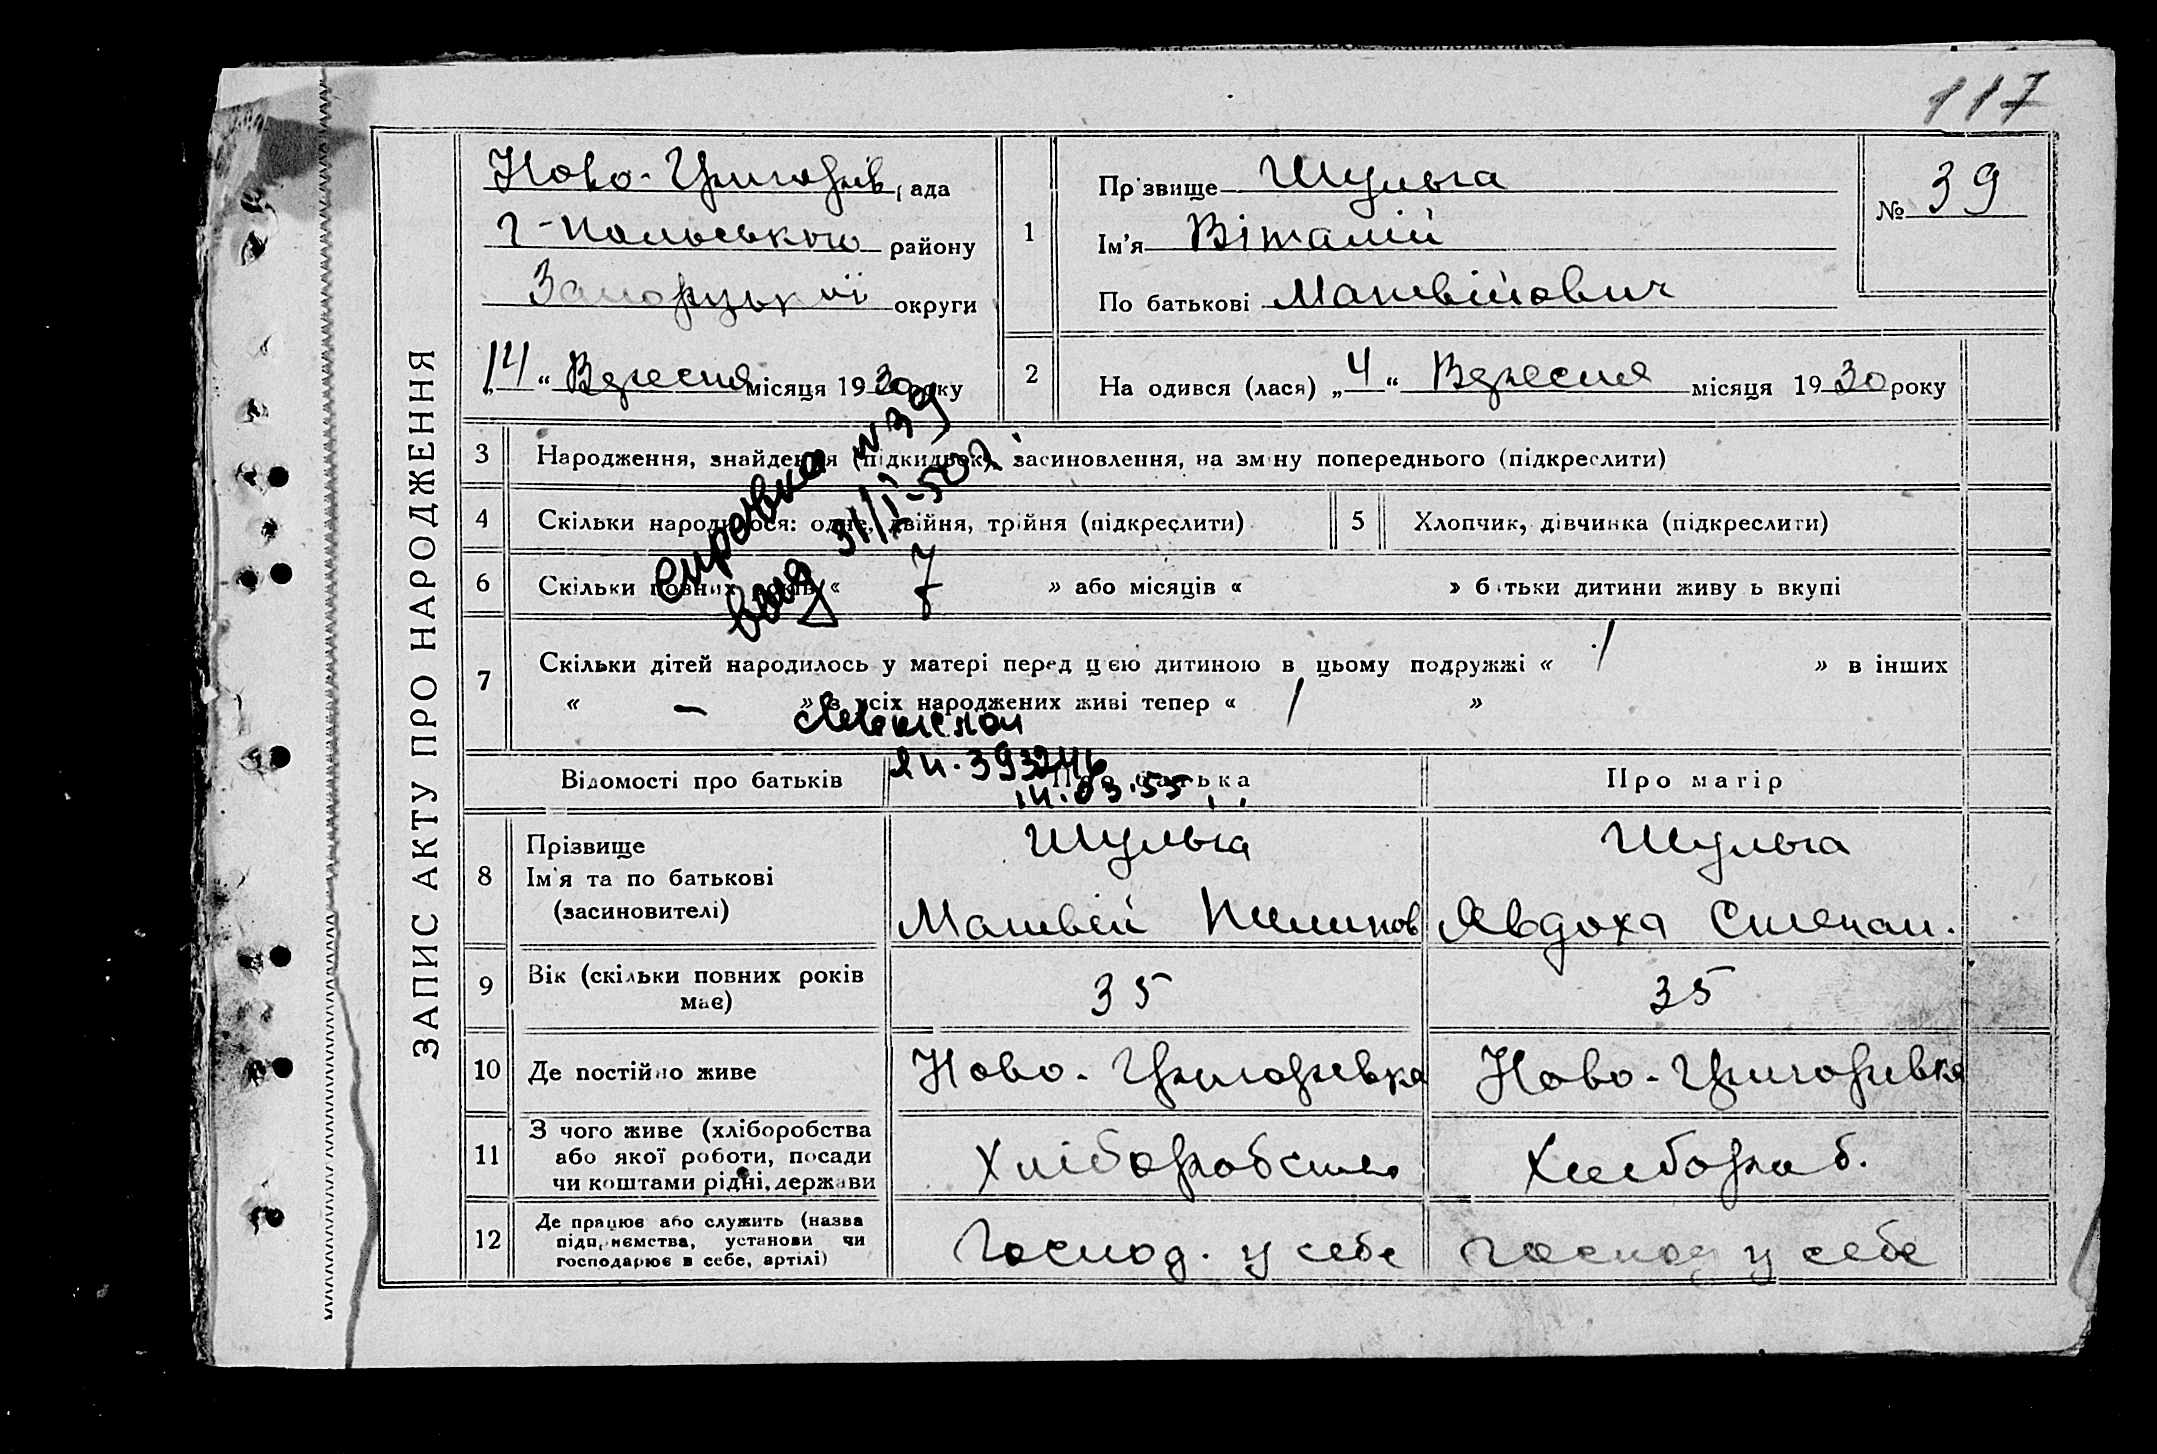 117
ЗАПИС АКТУ ПРО НАРОДЖЕННЯ
Ново-Григорів рада
г-Польського району
Запоріцької округи
„14“ Вересня місяця 1930 року
1
Прізвище Шульга
Ім'я Віталій
По батькові Матвійович
№ 39
2
На одився (лася) „4“ Вересня місяця 1930 року
3 Народження, знайдення (підкидьок), засиновлення, на зміну попереднього (підкреслити)
4 Скільки народилося: одне, двійня, трійня (підкреслити)
5 Хлопчик, дівчинка (підкреслити)
6 Скільки повних років « 7 » або місяців « » батьки дитини живуть вкупі
справка №39
выд 31/I-50г
7 Скільки дітей народилось у матері перед цією дитиною в цьому подружжі « 1 » в інших
« – » з усіх народжених живі тепер « 1 »
393246
14.03.55
Відомості про батьків
Про батька
Про матір
8 Прізвище
Ім'я та по батькові
(засиновителі)
Шульга
Матвей Пилипов
Шульга
Явдоха Степан.
9 Вік (скільки повних років
має)
35
35
10 Де постійно живе
Ново-Григоривка
Ново-Григоривка
11 З чого живе (хліборобства
або якої роботи, посади
чи коштами рідні, держави
Хліборобство
Хлібороб.
12 Де працює або служить (назва
підприємства, установи чи
господарює в себе, артілі)
Господ. у себе
Господ у себе